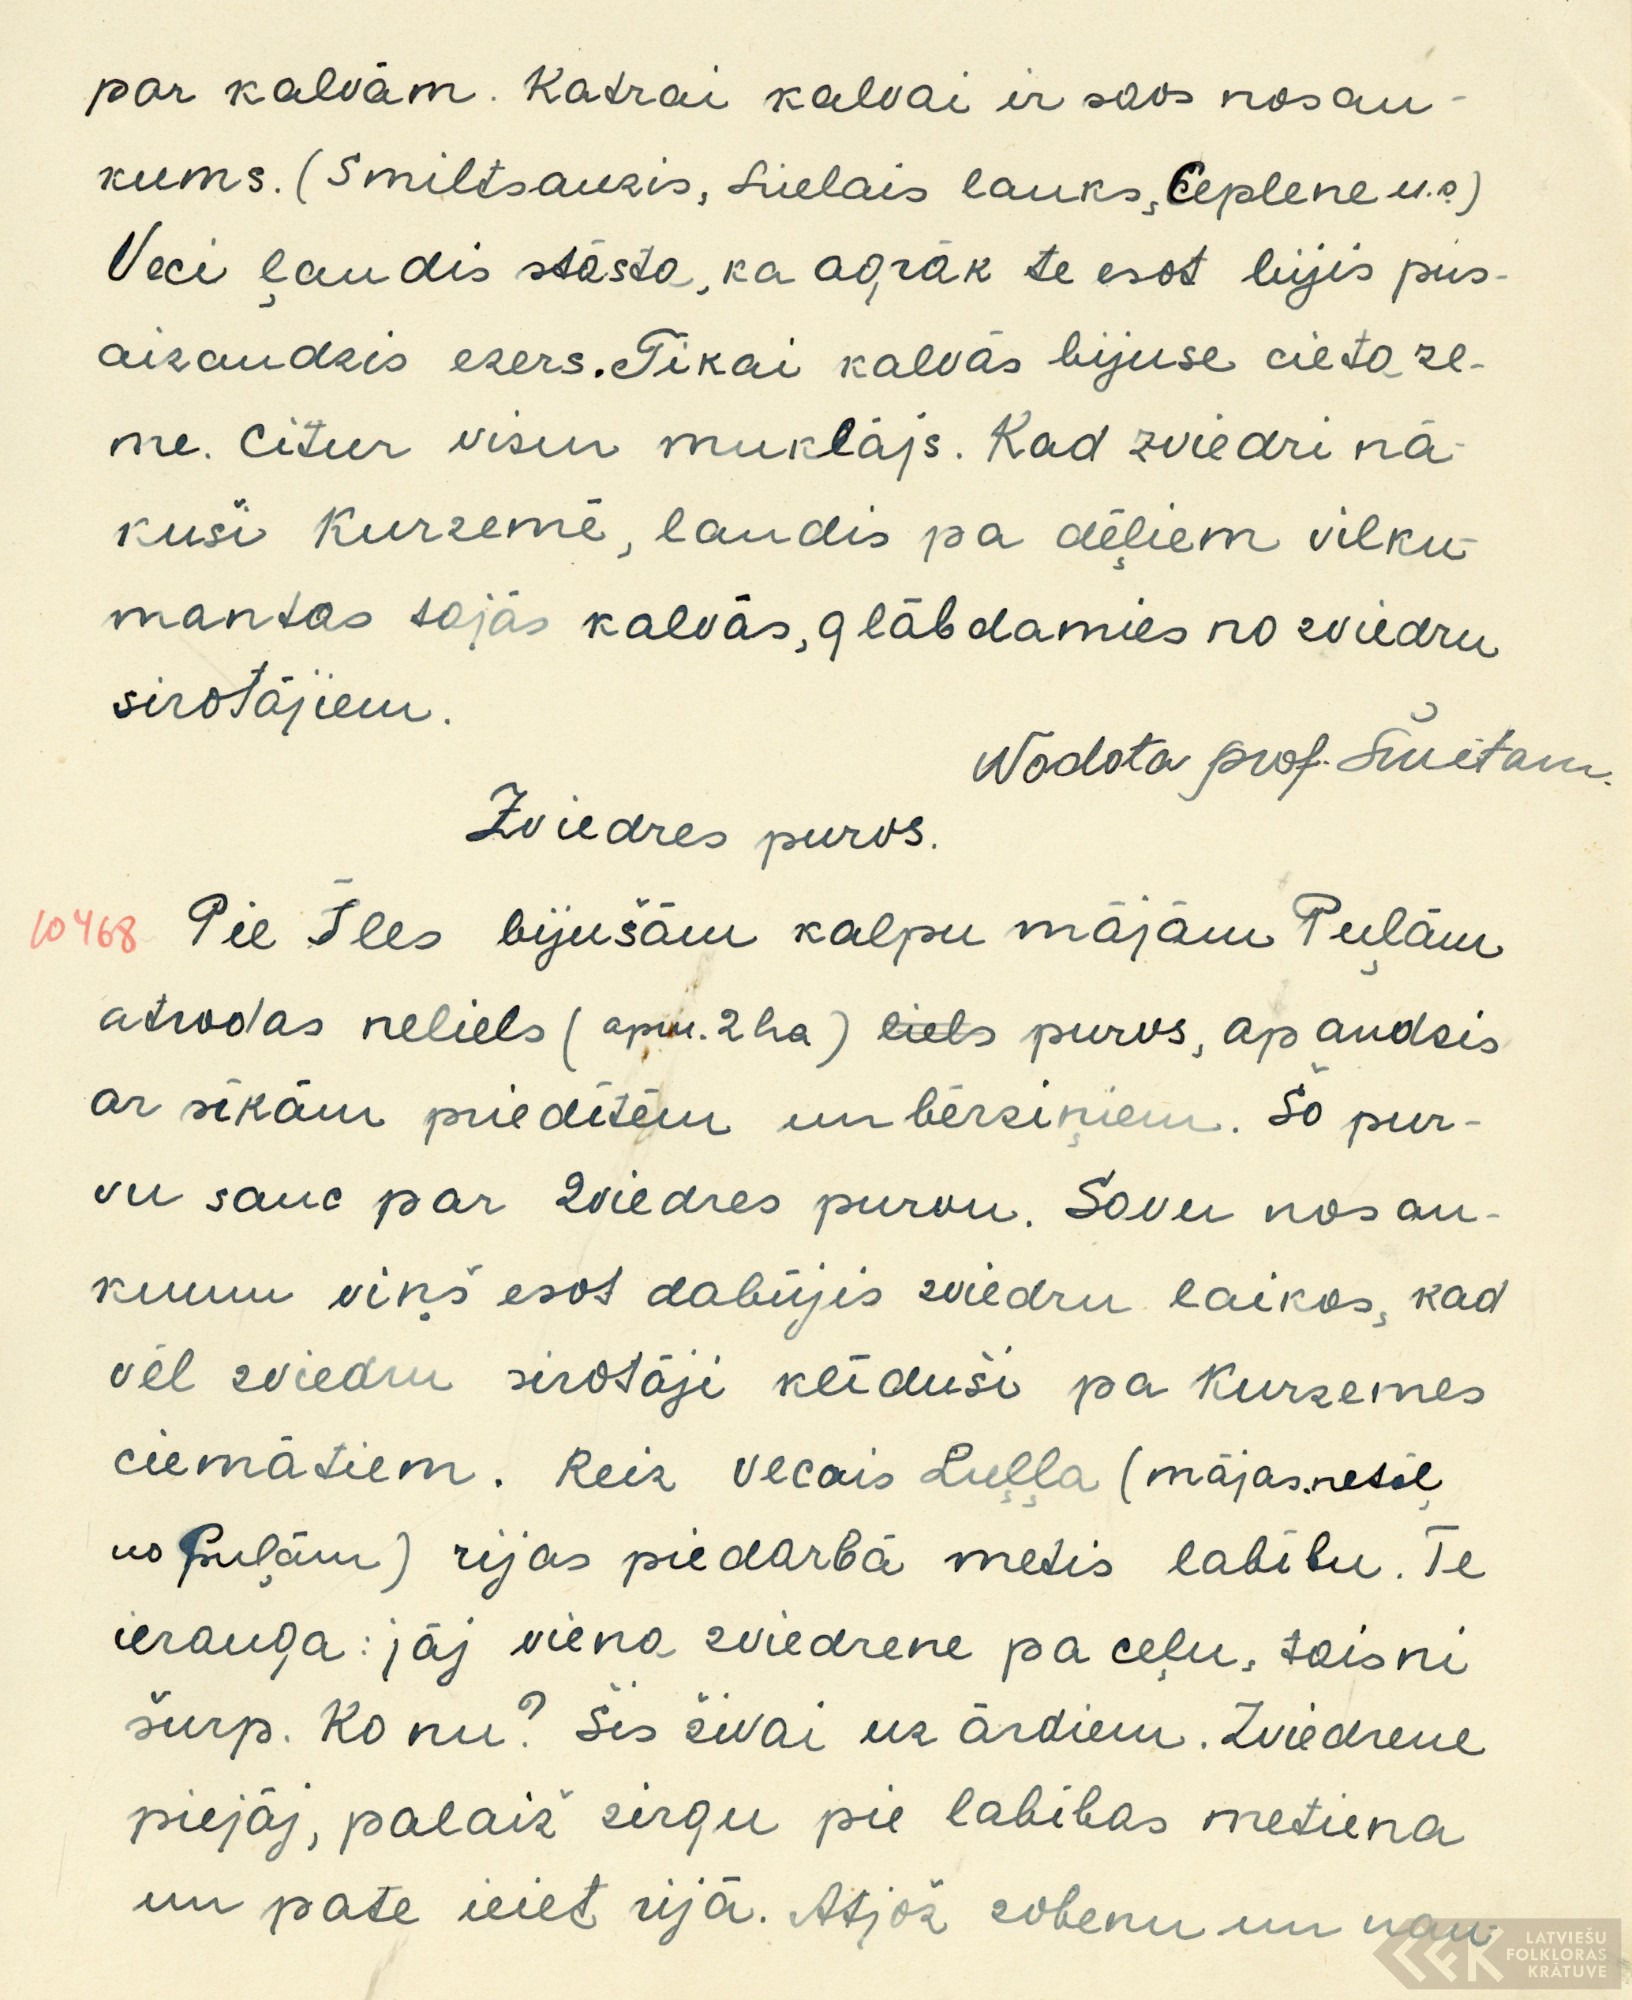 par kalvām. Katrai kalvai ir savs nosau-
kums. (Smiltsauzis, Lielais lauks, Ceplene u.c)
Veci ļaudis stāsta, ka agrāk te esot bijis pus-
aizaudzis ezers. Tikai kalvās bijuse cieta ze-
me. Citur visur muklājs. Kad zviedri nā-
kuši Kurzemē, laudis pa dēļiem vilku-
mantas tajās kalvās, glābdamies no zviedru
sirotājiem.
Nodota prof. Šmitam.
Zviedres purvs.
10468 Pie Īles bijušām kalpu mājām Puļām
atrodas neliels (apm. 2 ha) liels purvs, apaudzis
ar sīkām priedītēm un bērziņiem. Šo pur-
vu sauc par Zviedres purvu. Savu nosau-
kumu viņš esot dabūjis zviedru laikos, kad
vēl zviedru sirotāji klīduši pa Kurzemes
ciemātiem. Reiz vecais Luļļa (mājas netāļ
no Puļām) rijas piedarbā metis labību. Te
ierauga: jāj viena zviedrene pa ceļu, taisni
šurp. Ko nu? Šis živai uz ārdiem. Zviedrene
piejāj, palaiž zirgu pie labības metiena
un pate ieiet rijā. Atjož zobenu un nau-
LATVIEŠU
FOLKLORAS
KRĀTUVE